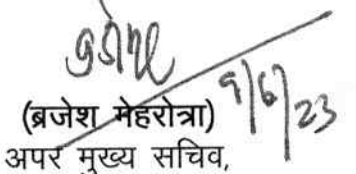 9/6/23
(ब्रजेश मेहरोत्रा)
अपर मुख्य सचिव,